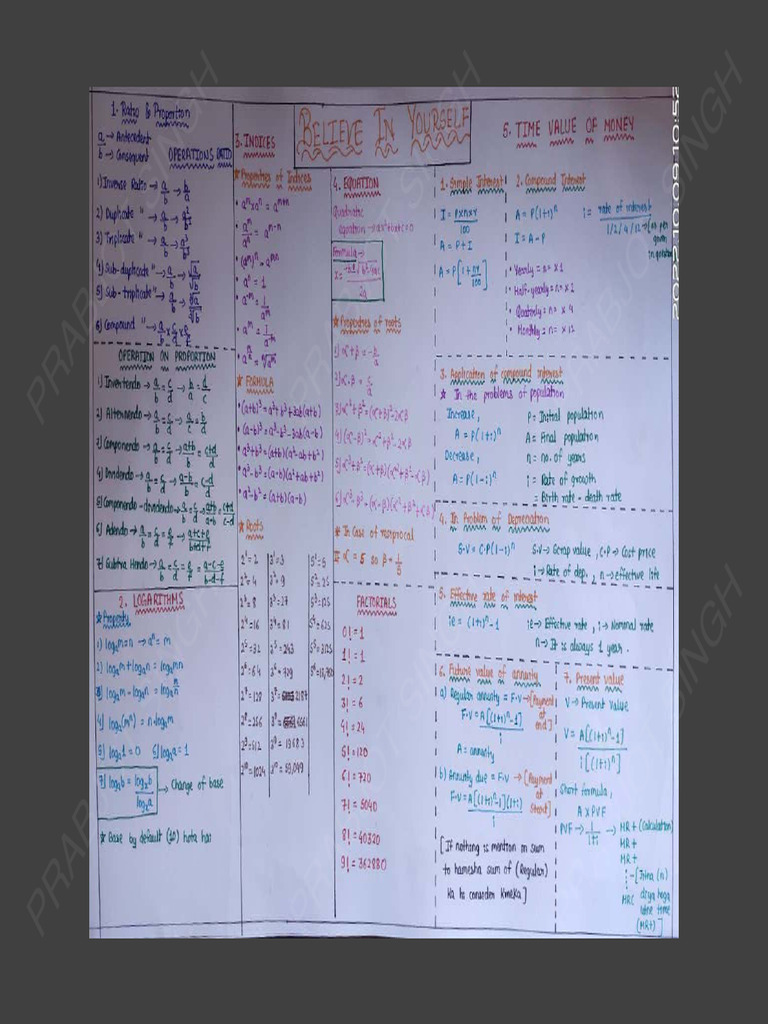 BELIEVE IN YOURSELF
1. Ratio & Proportion
a/b → Antecedent
→ Consequent
OPERATIONS
1) Inverse Ratio → a/b → b/a
2) Duplicate " → a/b → a²/b²
3) Triplicate " → a/b → a³/b³
4) Sub-duplicate " → a/b → √a/√b
5) Sub-triplicate " → a/b → ∛a/∛b
6) Compound "
OPERATION ON PROPORTION
1) Invertendo → a/b = c/d → b/a = d/c
2) Alternendo → a/b = c/d → a/c = b/d
3) Componendo → a/b = c/d → a+b/b = c+d/d
4) Dividendo → a/b = c/d → a-b/b = c-d/d
5) Componendo-dividendo → a/b = c/d → a+b/a-b = c+d/c-d
6) Adendo → a/b = c/d = e/f → a+c+e/b+d+f
7) Subtra Hendo → a/b = c/d = e/f = a-c-e/b-d-f
2. LOGARITHMS
1) logₐm = n → aⁿ = m
2) logₐm + logₐn = logₐmn
3) logₐm - logₐn = logₐm/n
4) logₐ(mⁿ) = n logₐm
5) logₐ1 = 0 6) logₐa = 1
→ Change of base
* Base by default (10) hota hai
3. INDICES
* Properties of Indices
• aᵐxaⁿ = aᵐ⁺ⁿ
• aᵐ/aⁿ = aᵐ⁻ⁿ
• (aᵐ)ⁿ = aᵐⁿ
• a⁰ = 1
* FORMULA
• (a+b)³ = a³+b³+3ab(a+b)
• (a-b)³ = a³-b³-3ab(a-b)
• a³+b³ = (a+b)(a²-ab+b²)
• a³-b³ = (a-b)(a²+ab+b²)
• a²-b² = (a+b)(a-b)
* Roots
2¹ = 2 3¹ = 3 5¹ = 5
2² = 4 3² = 9 5² = 25
2³ = 8 3³ = 27 5³ = 125
2⁴ = 16 3⁴ = 81 5⁴ = 625
2⁵ = 32 3⁵ = 243
2⁶ = 64 3⁶ = 729
2⁷ = 128 3⁷ = 2187
2⁸ = 256 3⁸ = 6561
2⁹ = 512 3⁹ = 19683
2¹⁰ = 1024 3¹⁰ = 59,049
4. EQUATION
Quadratic
equation → ax²+bx+c=0
Formula →
* Properties of roots
1) α+β = -b/a
2) α.β = c/a
3) α²+β² = (α+β)²-2αβ
* In Case of reciprocal
If α = 5 so β = 1/5
FACTORIALS
0! = 1
1! = 1
2! = 2
3! = 6
4! = 24
5! = 120
6! = 720
7! = 5040
8! = 40320
9! = 362880
5. TIME VALUE OF MONEY
1. Simple Interest
I = PxNxr/100
A = P+I
A = P[1+nr/100]
2. Compound Interest
A = P(1+i)ⁿ
I = A-P
i = rate of interest
1/2/4/12
• Yearly = n= x1
• Half-yearly = n= x2
• Quaterly = n= x4
• Monthly = n= x12
3. Application of compound interest
* In the problems of population
Increase,
A = P(1+i)ⁿ
Decrease,
A = P(1-i)ⁿ
P = Initial population
A = Final population
n = no. of years
i = Rate of growth
= Birth rate - death rate
4. In Problem of Depreciation
S.V = C.P(1-i)ⁿ
S.V → Scrap value, C.P → Cost price
i → Rate of dep., n → effective life
5. Effective rate of interest
ie = (1+i)ⁿ-1
ie → Effective rate, i → Nominal rate
n → It is always 1 year.
6. Future value of annuity
a) Regular annuity = F.V → [Payment at end]
F.V = A[(1+i)ⁿ-1]/i
A = annuity
b) Annuity due = F.V → [Payment at start]
F.V = A[(1+i)ⁿ-1](1+i)/i
[If nothing is mention on sum
to hamesha sum of (Regular)
7. Present value
V → Present value
V = A[(1+i)ⁿ-1]/i[(1+i)ⁿ]
Short formula,
A x PVF
PVF → 1/1+i → MR+ (Calculation)
MR+
MR+
MRC
(MR+)]
PRAPJOT SINGH